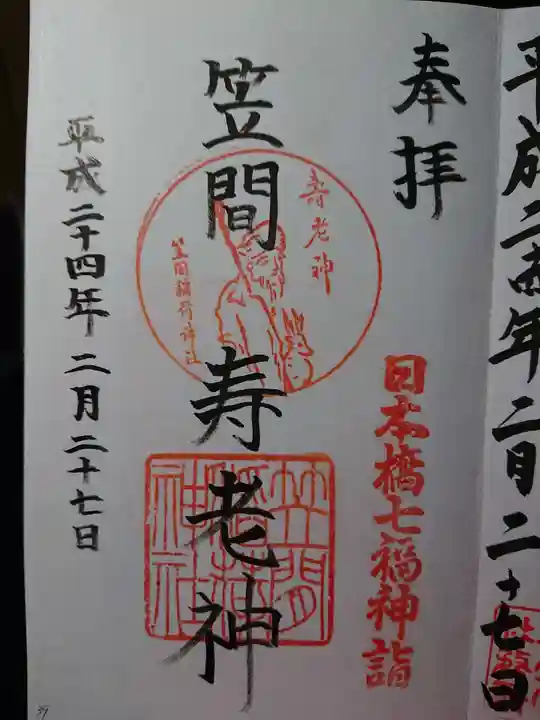 平成二十四年二月二十七日
奉拝
日本橋七福神詣
笠間 寿老神
寿老神
笠間稲荷神社
笠間稲荷神社
平成二十四年二月二十七日